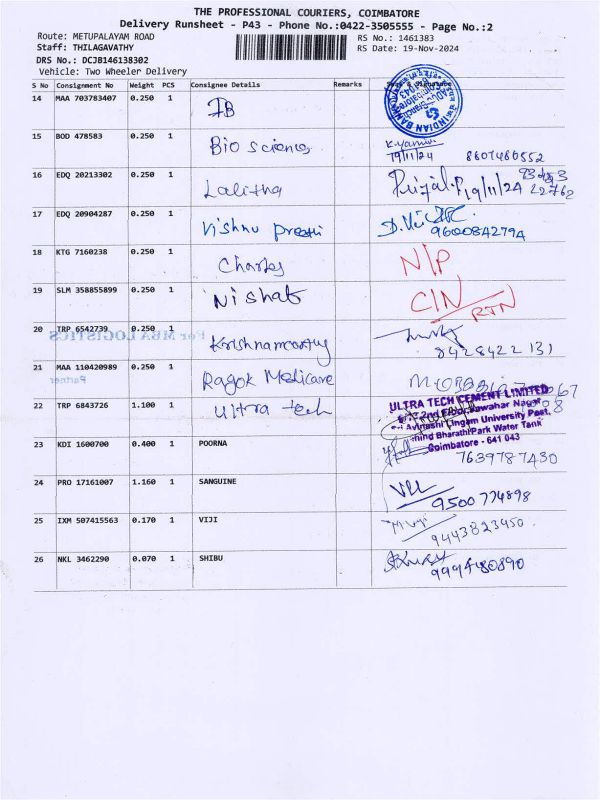 THE PROFESSIONAL COURIERS, COIMBATORE
Delivery Runsheet - P43 - Phone No.:0422-3505555 - Page No.:2
Route: METUPALAYAM ROAD
RS No.: 1461383
Staff: THILAGAVATHY
RS Date: 19-Nov-2024
DRS No.: DCJB146138302
Vehicle: Two Wheeler Delivery
S No Consignment No Weight PCS Consignee Details Remarks
14 MAA 703783407 0.250 1 IB
INDIAN BANK
15 BOD 478583 0.250 1 Bio science
19/11/24 8607480552
16 EDQ 20213302 0.250 1 Lalitha
19/11/24
17 EDQ 20904287 0.250 1 Vishnu preethi
9600842794
18 KTG 7160238 0.250 1 Charles N/P
19 SLM 358855899 0.250 1 Nishat C/N RTN
20 TRP 6542739 0.250 1 Krishnamoorthy
For MBA LOGISTICS
8428422 131
21 MAA 110420989 0.250 1 Ragok Medicare
Partner
22 TRP 6843726 1.100 1 Ultra tech
ULTRA TECH CEMENT LIMITED
2nd Floor, Jawahar Nagar
Avinashi Lingam University Post,
Behind Bharathi Park Water Tank
Coimbatore - 641 043
23 KDI 1600700 0.400 1 POORNA
7639787430
24 PRO 17161007 1.160 1 SANGUINE
9500774898
25 IXM 507415563 0.170 1 VIJI
9443823450
26 NKL 3462290 0.070 1 SHIBU
9994480890